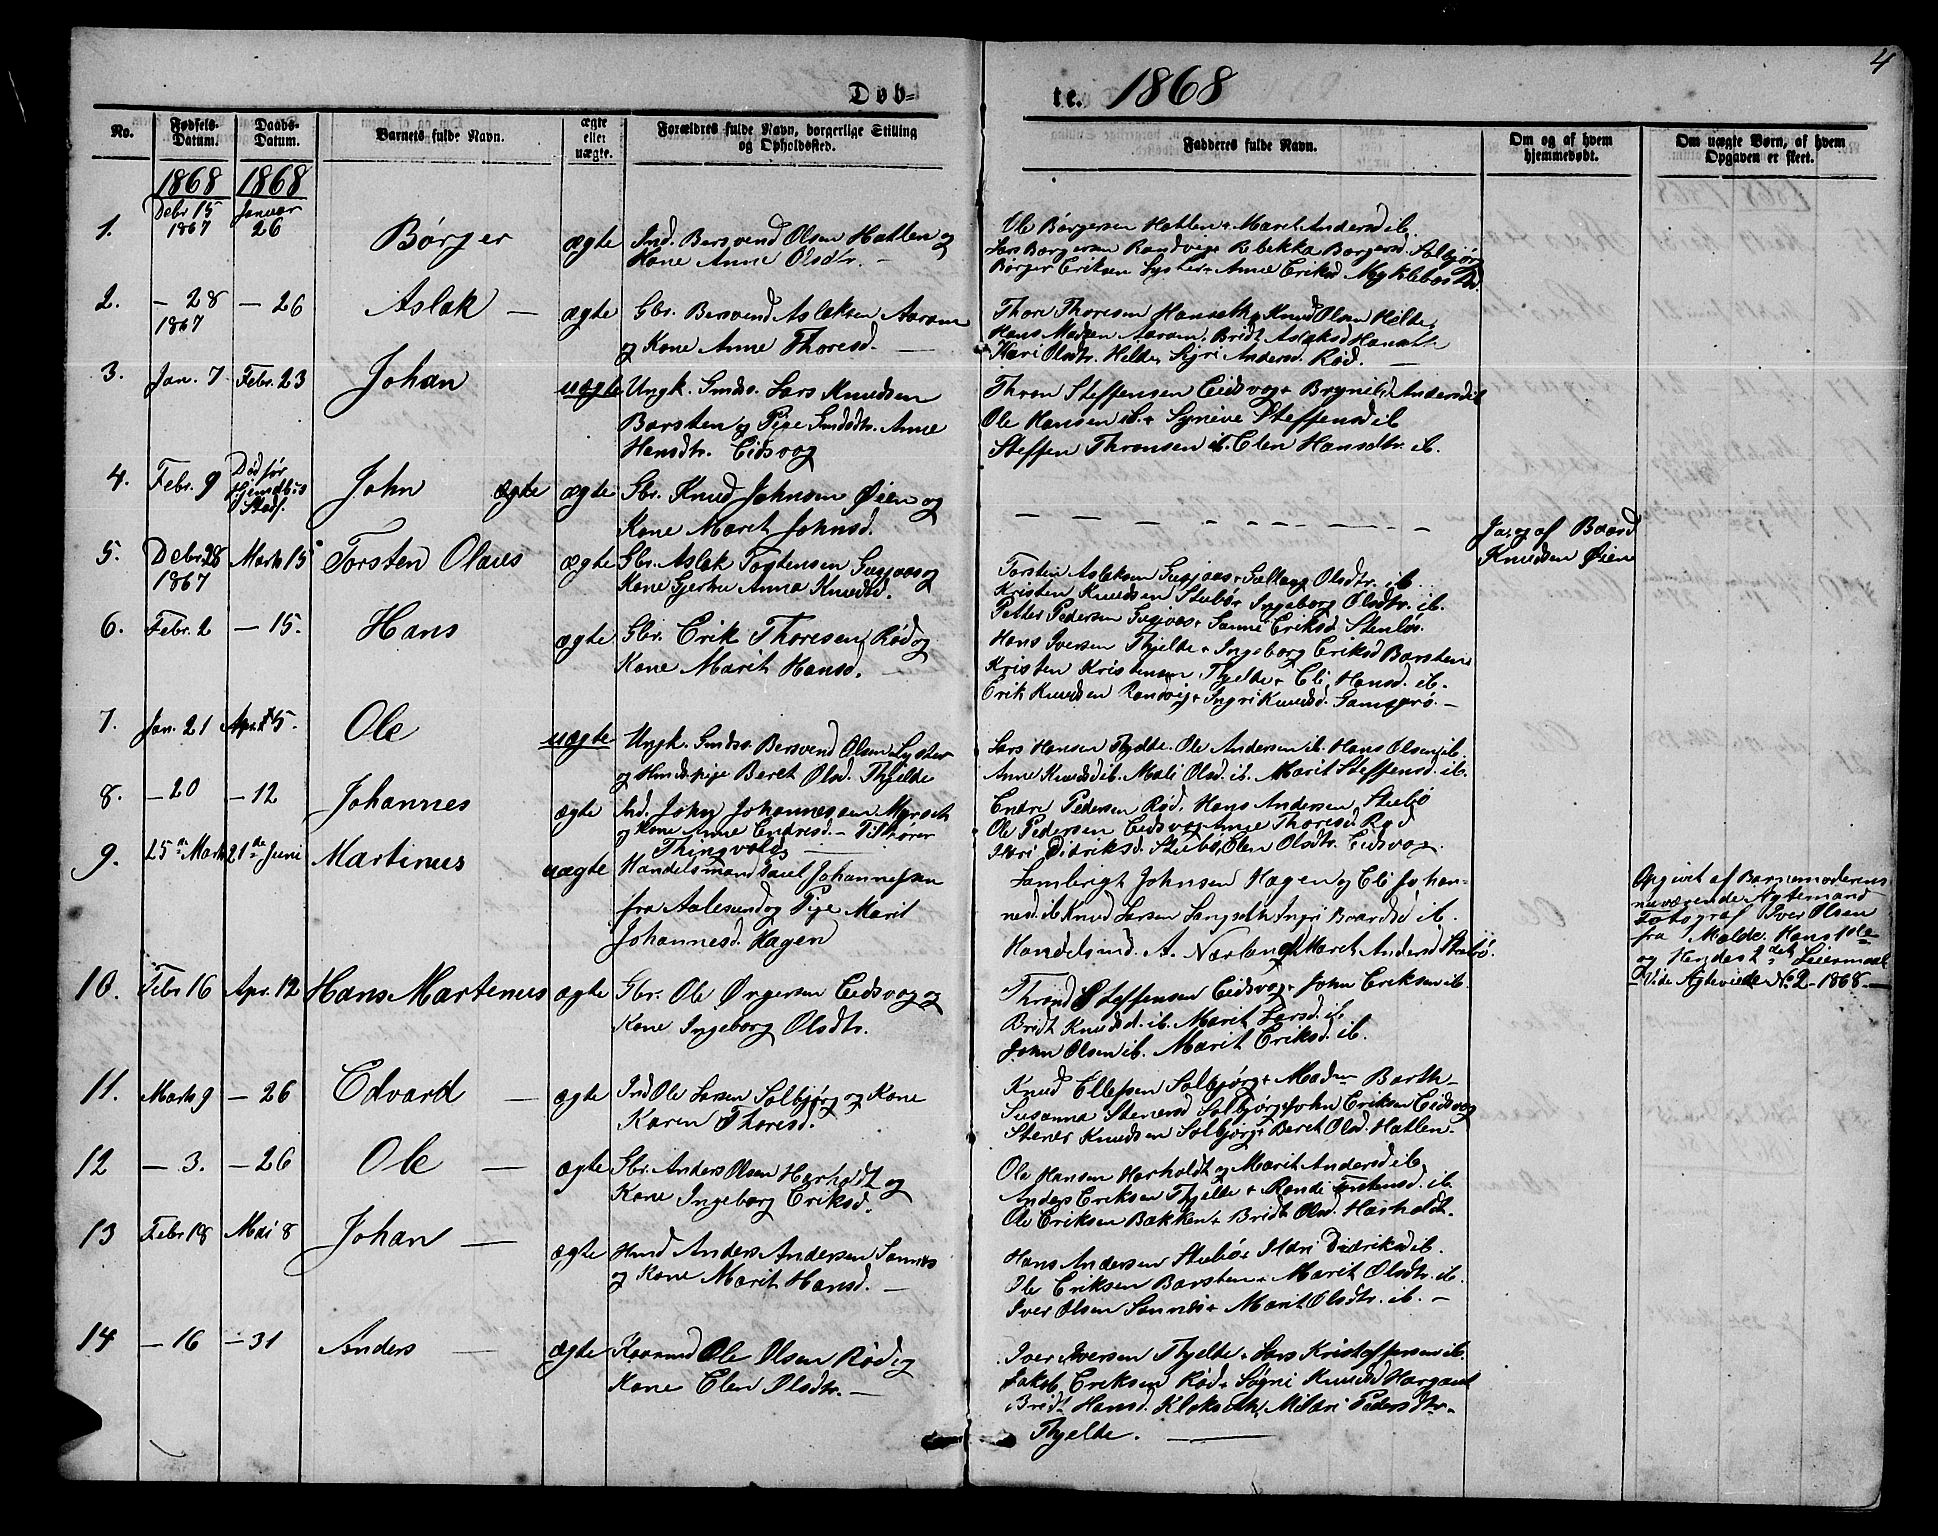 4
Døb-
te. 1868
No.
Fødsels-
Datum.
Daabs-
Datum.
Barnets fulde Navn.
ægte
eller
uægte.
Forældres fulde Navn, borgerlige Stilling
og Opholdssted.
Fadderes fulde Navn.
Om og af hvem
hjemmedøbt.
Om uægte Børn, af hvem
Opgaven er skeet.
1868 1868
1. Debr 15 1867 Januar 26 Børger ægte Ind. Bersvend Olsen Hatlen og
Kone Anne Olsdtr. —
Ole Børgersen Hatlen + Marit Andersd ib.
Lars Børgersen Randvig + Rebekka Børgersd. Solbjørg
Børger Eriksen Syster + Anne Eriksd Myklebostad.
2. — 28 1867 — 26 Aslak — ægte Gbr. Bersvend Aslaksen Aarem
og Kone Anne Thoresd. —
Thore Thoresen Hanseth, Knud Olsen Helde,
Hans Madsen Aarem, Bridt Aslaksd Hanseth
Kari Olsdtr. Helde, Sigri Andersd. Rød. —
3. Jan. 7 Febr. 23 Johan uægte Ungk. Gmds. Lars Knudsen
Barsten og Pige Gmdsdtr. Anne
Hansdtr. Eidsvog
Thron Steffensen Eidsvog + Brynild Andersd ib
Ole Hansen ib. + Synive Steffensd ib
Steffen Thronsen ib. Elen Hansdtr. ib.
4. Febr. 9 Død før
Hjemdbs
Stadf. John ægte ægte Gbr. Knud Johnsen Øien og
Kone Marit Johnsd.
— — — — — — — — — —
Ja, og af Baard
Knudsen Øien
5. Debr. 28 1867 Marts 15 Torsten Olaus ægte Gbr. Aslak Tostensen Gusjaas og
Kone Gjertru Anna Knudsd.
Torsten Aslaksen Gusjaas + Olsdtr. ib.
Kristen Knudsen Stubø + Ingeborg Olsdtr. ib.
Petter Pedersen Gusjaas + Eriksd. Stenløs.
6. Febr. 2 — 15. Hans ægte Gbr. Erik Thoresen Rød og
Kone Marit Hansd.
Hans Iversen Thjelde + Ingeborg Eriksd Barsten,
Kristen Kristensen Thjelde + Eli Hansd. ib.
Erik Knudsen Randvig + Ingri Knudsd. —
7. Jan. 21 Apr. 15. Ole uægte Ungk. Gmdss. Bersvend Olsen Syster
og Hmds. pige Beret Olsd. Thjelde
Lars Hansen Thjelde. Ole Andersen ib. Hans Olsen ib.
Anne Knudsd ib. Mali Olsd. ib. Marit Steffensd. ib.
8. — 20 — 12 Johannes ægte Ind. John Johannesen Myrseth
og Kone Anne Endresd. — Tilhører
Thingvold
Endre Pedersen Rød, Hans Andersen Stubø
Ole Pedersen Eidsvog Anne Thoresd. Rød
Ildri Didriksd. Stubø, Elen Olsdtr. Eidsvog.
9. 25de Marts 21de Juni Martinus uægte Handelsmand Johannesen
fra Aalesund og Pige Marit
Johannesd. Hagen
Lambregt Johnsen Hagen og Eli Johan-
nesd. ib Knud Larsen Langseth Ingri Baardsd ib.
Handelsmd. A. Nærland Marit Andersd Stubø.
Opgivet af Barnemoderens
nuværende Ægtemand
Fotograf Iver Olsen
fra Molde. Hans 1ste
og Hendes 2det Leiermaal
Vide Ægteviede No 2 - 1868. —
10. Febr 16 Apr. 12 Hans Martinus ægte Gbr. Ole Ørgersen Eidsvog og
Kone Ingeborg Olsdtr.
Thrond Steffensen Eidsvog + John Eriksen ib.
Bridt Knudsd. ib. Marit Larsd. ib
John Olsen ib. Marit Eriksd. ib.
11. Marts 9 — 26 Edvard — ægte Ind Ole Larsen Solbjørg og Kone
Karen Thoresd.
Knud Ellefsen Solbjørg + Madm Barth —
Susanna Stenersd Solbjørg John Eriksen Eidsvog
Stener Knudsen Solbjørg + Beret Olsd. Hatlen.
12 — 3. — 26 Ole — ægte Gbr. Anders Olsen Harholdt og
Kone Ingeborg Eriksd.
Ole Hansen Harholdt og Marit Andersd ib.
Anders Eriksen Thjelde + Randi Torstensd. ib
Ole Eriksen Bakken + Bridt Olsd. Harholdt.
13 Febr 18 Mai 8 Johan — ægte Hmd Anders Andersen Sannes
og Kone Marit Hansd. —
Hans Andersen Stubø + Ildri Didriksd ib.
Ole Eriksen Barsten + Marit Olsdtr. ib.
Iver Olsen Sannes + Marit Olsdtr. ib. —
14 — 16 — 31 Anders — ægte Kaarmd Ole Olsen Rød og
Kone Elen Olsdtr. —
Iver Iversen Thjelde + Lars Kristoffersen ib.
Jakob Eriksen Rød + Søgni Knudsd Hargaut
Bridt Hansd. Kloksæth, Mildri Pedersdtr.
Thjelde. —